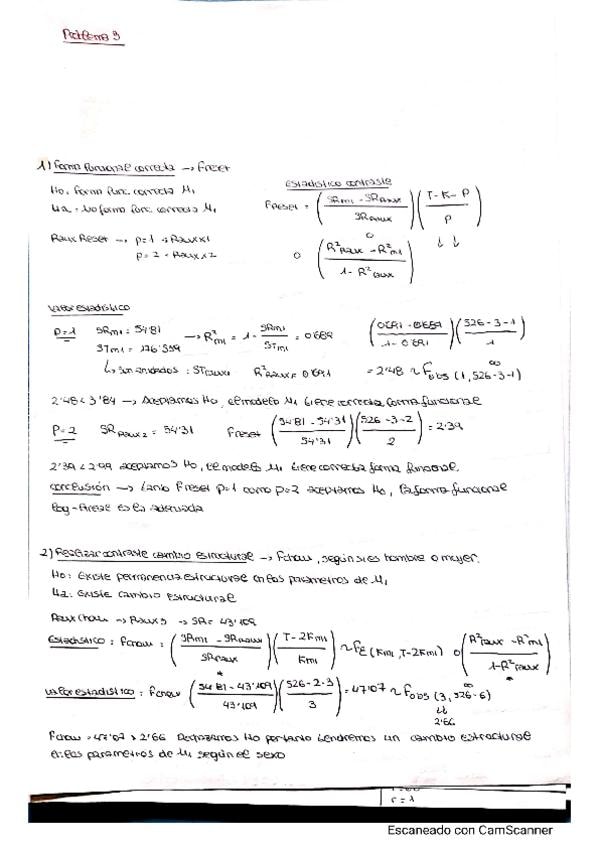 Problema 3
1) Forma funcional correcta → Freset
H0: Forma func. correcta M1
Ha: No forma func. correcta M1
Raux Reset → p=1 → Raux1
p=2 → Raux2
Estadístico contraste
Freset = (SRm1 - SRaux / SRaux) (T-K-P / P)
o
o (R²aux - R²m1 / 1 - R²aux)
Valor estadístico
P=1 SRm1 = 54'81 → R²m1 = 1 - SRm1/STm1 = 0'689 (0'691 - 0'689 / 1 - 0'691) (526-3-1 / 1)
STm1 = 176'359
STaux R²aux = 0'691 = 2'48 ~ Fobs (1, 526-3-1)
∞
2'48 < 3'84 → Aceptamos H0, el modelo M1 tiene correcta forma funcional
P=2 SRaux2 = 54'31 Freset (54'81 - 54'31 / 54'31) (526-3-2 / 2) = 2'39
2'39 < 2'99 aceptamos H0, el modelo M1 tiene correcta forma funcional.
Conclusión → tanto Freset p=1 como p=2 aceptamos H0, la forma funcional
log-lineal es la adecuada
2) Realizar contraste cambio estructural → Fchow, según si es hombre o mujer.
H0: Existe permanencia estructural en los parametros de M1
Ha: Existe cambio estructural
Raux Chow → Raux3 → SR = 43'109
Estadístico: Fchow: (SRm1 - SRaux / SRaux) (T-2Km1 / Km1) ~ FE (Km1, T-2Km1) o (R²aux - R²m1 / 1-R²aux)
Valor estadístico: Fchow (54'81 - 43'109 / 43'109) (526-2·3 / 3) = 47'07 ~ Fobs (3, 526-6)
∞
2'66
Fchow = 47'07 > 2'66 Rechazamos H0 por tanto tendremos un cambio estructural
en los parametros de M1 según el sexo
r = 1
Escaneado con CamScanner